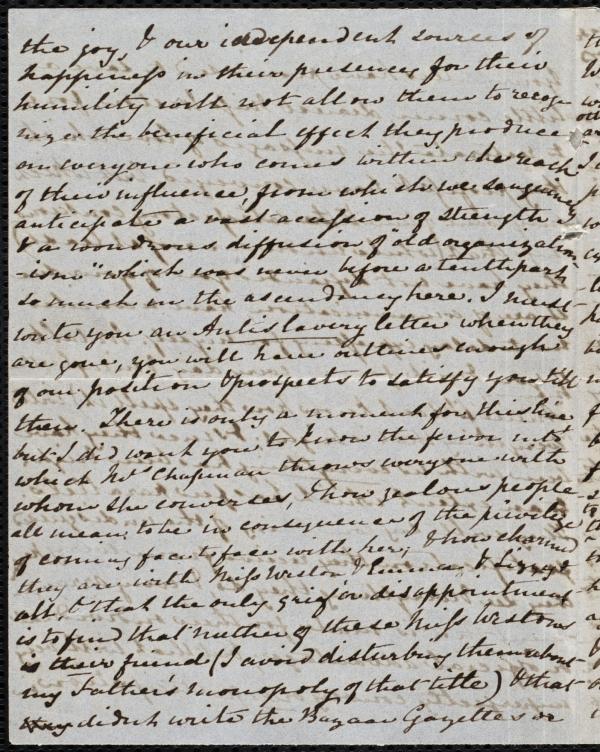 the joy, & our independent sources of
happiness in their presence, for their
humility will not allow them to recog-
nize the beneficial effect they produce
on everyone who comes within the reach
of their influence, from which we sanguinely
anticipate a vast accession of strength &
& a wondrous diffusion of "old organization
-ism" which was never before a tenth part
so much in the ascendency here. I must
write you an Antislavery letter when they
are gone, you will have outlines enough
of our position & prospects to satisfy you till
then. There is only a moment for this line
but I did want you to know the fervor into
which Mrs Chapman throws everyone with
whom she converses, & how zealous people
all mean to be in consequence of the privilege
of coming face to face with her, & how charmed
they are with Miss Weston & Emma, & Lizzy &
all, & that the only grief or disappointment
is to find that neither of these Miss Westons
is their friend (I avoid disturbing them about
my Father's monopoly of that title) & that
didn't write the Bazaar Gazettes or